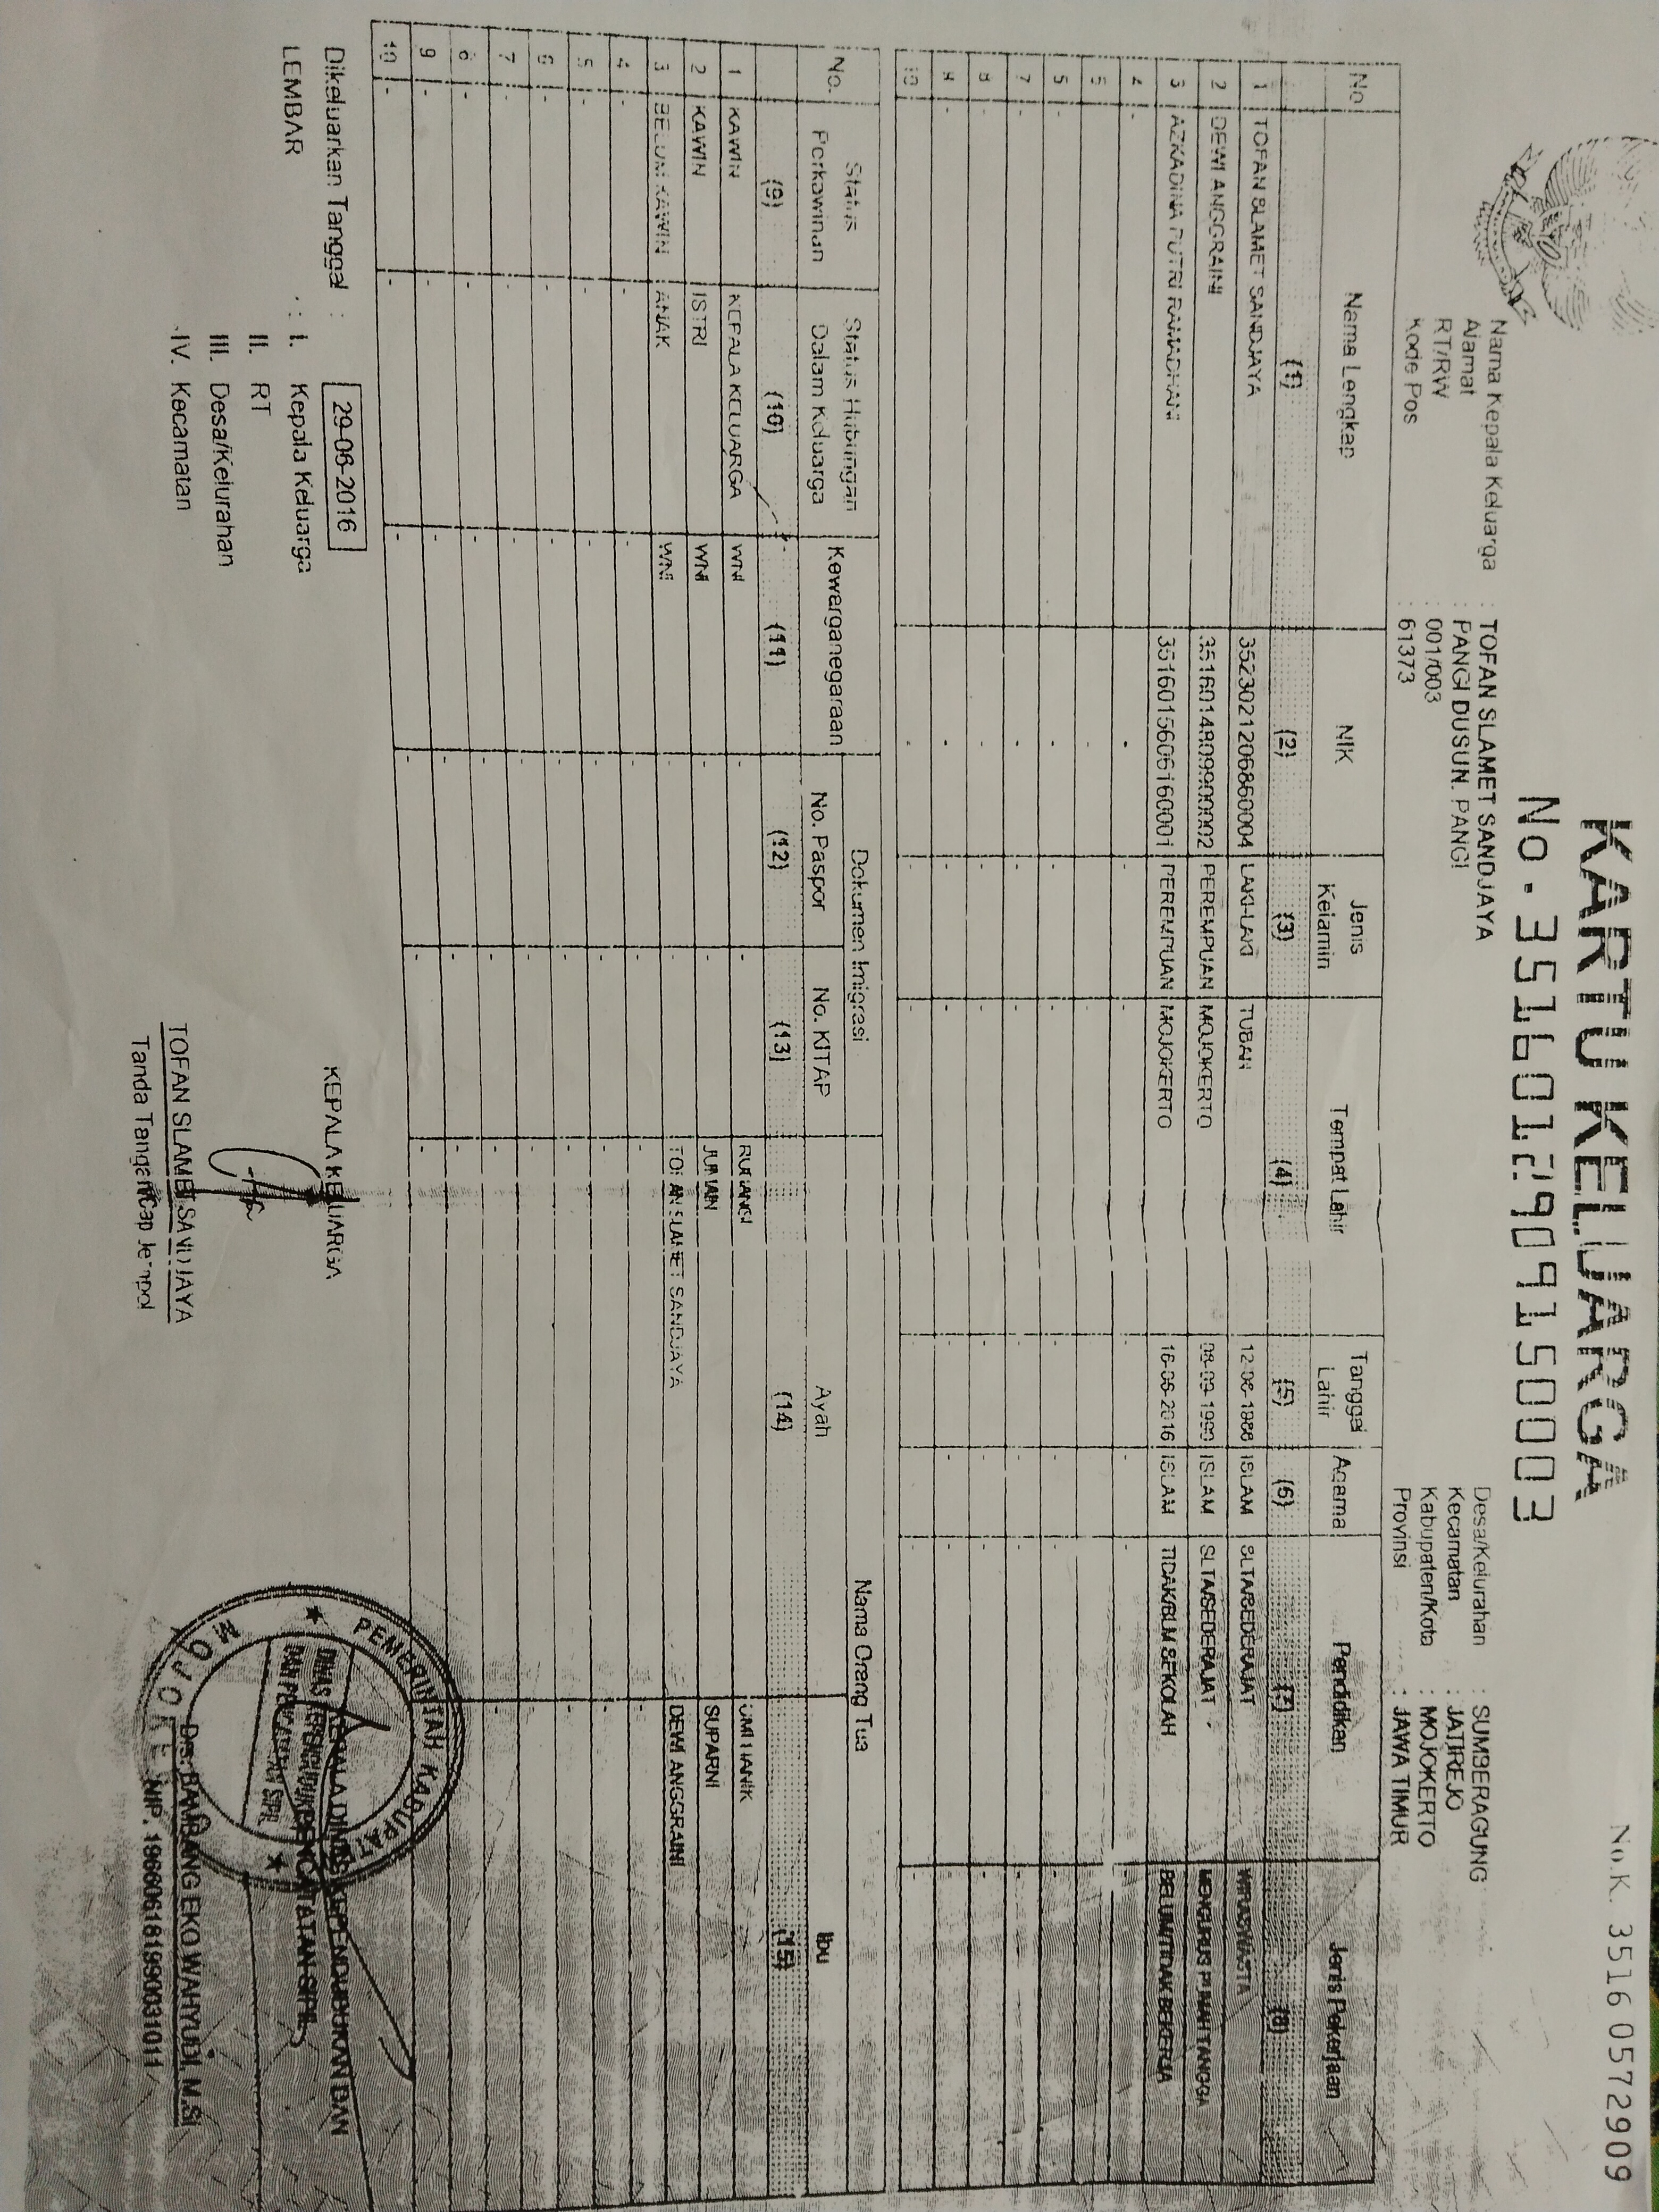 No.K. 3516 0572909
KARTU KELUARGA
No. 3516012909150003
Nama Kepala Keluarga : TOFAN SLAMET SANDJAYA
Alamat : PANGI DUSUN. PANGI
RT/RW : 001/003
Kode Pos : 61373
Desa/Kelurahan : SUMBERAGUNG
Kecamatan : JATIREJO
Kabupaten/Kota : MOJOKERTO
Provinsi : JAWA TIMUR
No Nama Lengkap NIK Jenis Kelamin Tempat Lahir Tanggal Lahir Agama Pendidikan Jenis Pekerjaan
(1) (2) (3) (4) (5) (6) (7) (8)
1 TOFAN SLAMET SANDJAYA 3523021206860004 LAKI-LAKI TUBAN ISLAM SLTA/SEDERAJAT WIRASWASTA
2 DEWI ANGGRAINI PEREMPUAN MOJOKERTO 08-09-1999 ISLAM SLTA/SEDERAJAT MENGURUS RUMAH TANGGA
3 AZKADINA PUTRI RAMADHANI 3516015606160001 PEREMPUAN MOJOKERTO 16-06-2016 ISLAM TIDAK/BLM SEKOLAH BELUM/TIDAK BEKERJA
4 - - - - - - - -
5 - - - - - - - -
6 - - - - - - - -
7 - - - - - - - -
8 - - - - - - - -
9 - - - - - - - -
10 - - - - - - - -
No. Status Perkawinan Status Hubungan Dalam Keluarga Kewarganegaraan Dokumen Imigrasi Nama Orang Tua
No. Paspor No. KITAP Ayah Ibu
(9) (10) (11) (12) (13) (14) (15)
1 KAWIN KEPALA KELUARGA WNI - -
2 KAWIN ISTRI WNI - - SUPARNI
3 BELUM KAWIN ANAK WNI - - TOFAN SLAMET SANDJAYA DEWI ANGGRAINI
4 - - - - - - -
5 - - - - - - -
6 - - - - - - -
7 - - - - - - -
8 - - - - - - -
9 - - - - - - -
10 - - - - - - -
Dikeluarkan Tanggal : 29-06-2016
LEMBAR : I. Kepala Keluarga
II. RT
III. Desa/Kelurahan
IV. Kecamatan
KEPALA KELUARGA
TOFAN SLAMET SANDJAYA
Tanda Tangan/Cap Jempol
KEPALA DINAS KEPENDUDUKAN DAN
PENCATATAN SIPIL
PEMERINTAH KABUPATEN
DINAS KEPENDUDUKAN
DAN PENCATATAN SIPIL
Drs. BAMBANG EKO WAHYUDI, M.SI
NIP. 196606181990031011